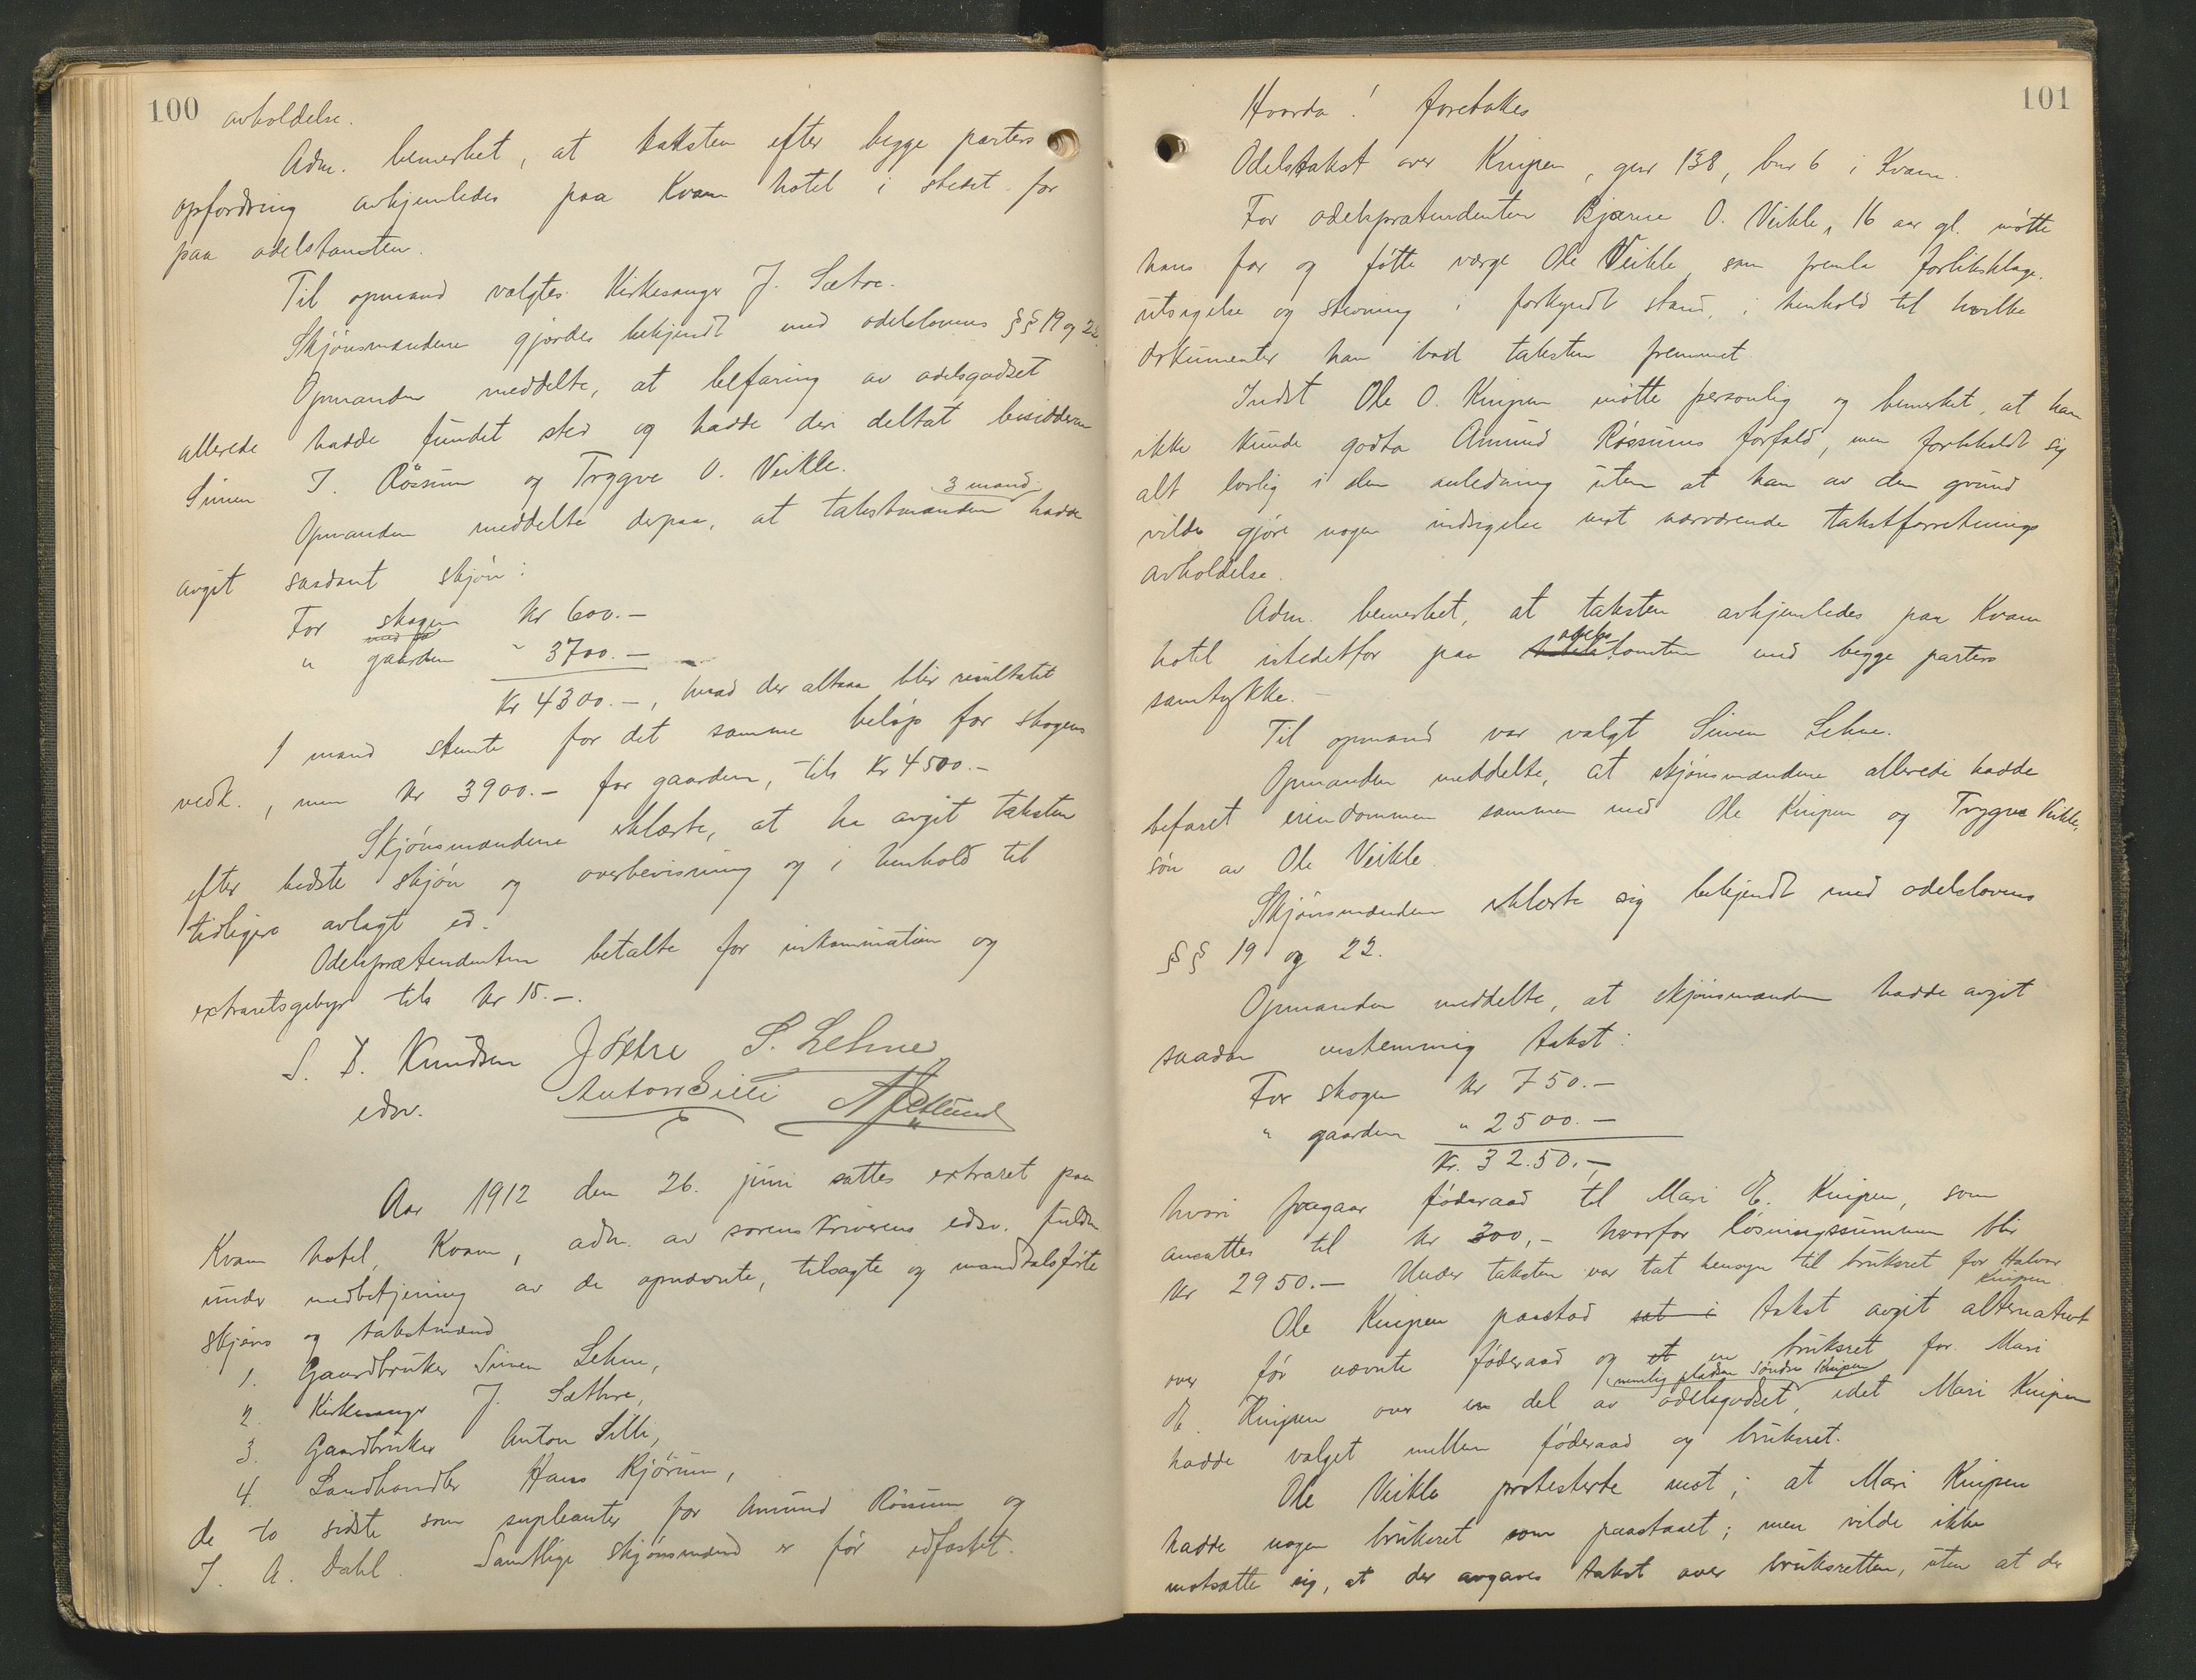 100
avholdelse.
Adm. bemerket, at taksten efter begge parters
opfordring avhjemledes paa Kvam hotel i stedet for
paa odelstomten.
Til opmand valgtes Kirkesanger J. Sætre.
Skjønsmændene gjordes bekjendt med odelslovens §§ 19 og 22.
Opmanden meddelte, at befaring av odelsgodset
allerede hadde fundet sted og hadde deri deltat besidderen
Simen I. Røssum og Trygve O. Veikle.
Opmanden meddelte derpaa, at takstmænden 3 mand hadde
avgit saadant skjøn:
For skogen Kr 600.-
" gaarden " 3700.-
Kr 4300.-, hvad der altsaa blir resultatet
1 mand stemte for det samme beløp for skogens
vedk., men Kr 3900.- for gaarden, tils Kr 4500.-
Skjønsmændene erklærte, at ha avgit taksten
efter bedste skjøn og overbevisning og i henhold til
tidligere avlagt ed.
Odelsprætendenten betalte for inkamination og
extraretsgebyr tils Kr 15.-.
S. D. Knudsen J Sætre S. Lehne
edsv. Anton Silli
Aar 1912 den 26. juni sattes extraret paa
Kvam hotel, Kvam, adm. av sorenskriverens edsv. fuldm
under medbetjening av de opnævnte, tilsagte og mandtalsførte
skjøns og takstmænd
1. Gaardbruker Simen Lehne,
2. Kirkesanger J. Sæthre,
3. Gaardbruker Anton Silli,
4. Landhandler Hans Kjørum,
de to sidste som supleanter for Amund Røssum og
I. A. Dahl. Samtlige skjønsmænd er før edfæstet.
101
Hvorda! foretakes
Odelstakst over Knipen, gnr 138, bnr 6 i Kvam.
For odelsprætendenten Bjarne O. Veikle, 16 aar gl. møtte
hans far og fødte værge Ole Veikle som fremla forliksklage,
utsigelse og stevning i forkyndt stand, i henhold til hvilke
dokumenter han bad taksten fremmet.
Indst Ole O. Knipen møtte personlig og bemerket, at han
ikke kunde godta Amund Røssums forfald, men forbeholdt sig
alt lovlig i den anledning uten at han av den grund
vilde gjøre nogen indsigelse mot nærværende takstforretnings
avholdelse.
Adm. bemerket, at taksten avhjemledes paa Kvam
hotel istedetfor paa odelstomten med begge parters
samtykke.-
Til opmand var valgt Simen Lehne.
Opmanden meddelte, at skjønsmændene allerede hadde
befaret eiendommen sammen med Ole Knipen og Trygve Veikle,
søn av Ole Veikle.
Skjønsmændene erklærte sig bekjendt med odelslovens
§§ 19 og 22.
Opmanden meddelte, at skjønsmændene hadde avgit
saadan enstemmig takst:
For skogen Kr 750.-
" gaarden " 2500.-
Kr. 3250.-,
hvori fragaar føderaad til Mari E. Knipen, som
ansættes til Kr 300,- hvorfor løsningssummen blir
Kr 2950.- Under taksten var tat hensyn til bruksret for Halvor
Knipen.
Ole Knipen paastod takst avgit alternativt
over før nævnte føderaad og en bruksret for Mari
nemlig pladsen Søndre Knipen
E. Knipen over en del av odelsgodset, idet Mari Knipen
hadde valget mellem føderaad og bruksret.
Ole Veikle protesterte mot, at Mari Knipen
hadde nogen bruksret som paastaaet; men vilde ikke
motsætte sig, at der avgaves takst over bruksretten, uten at der